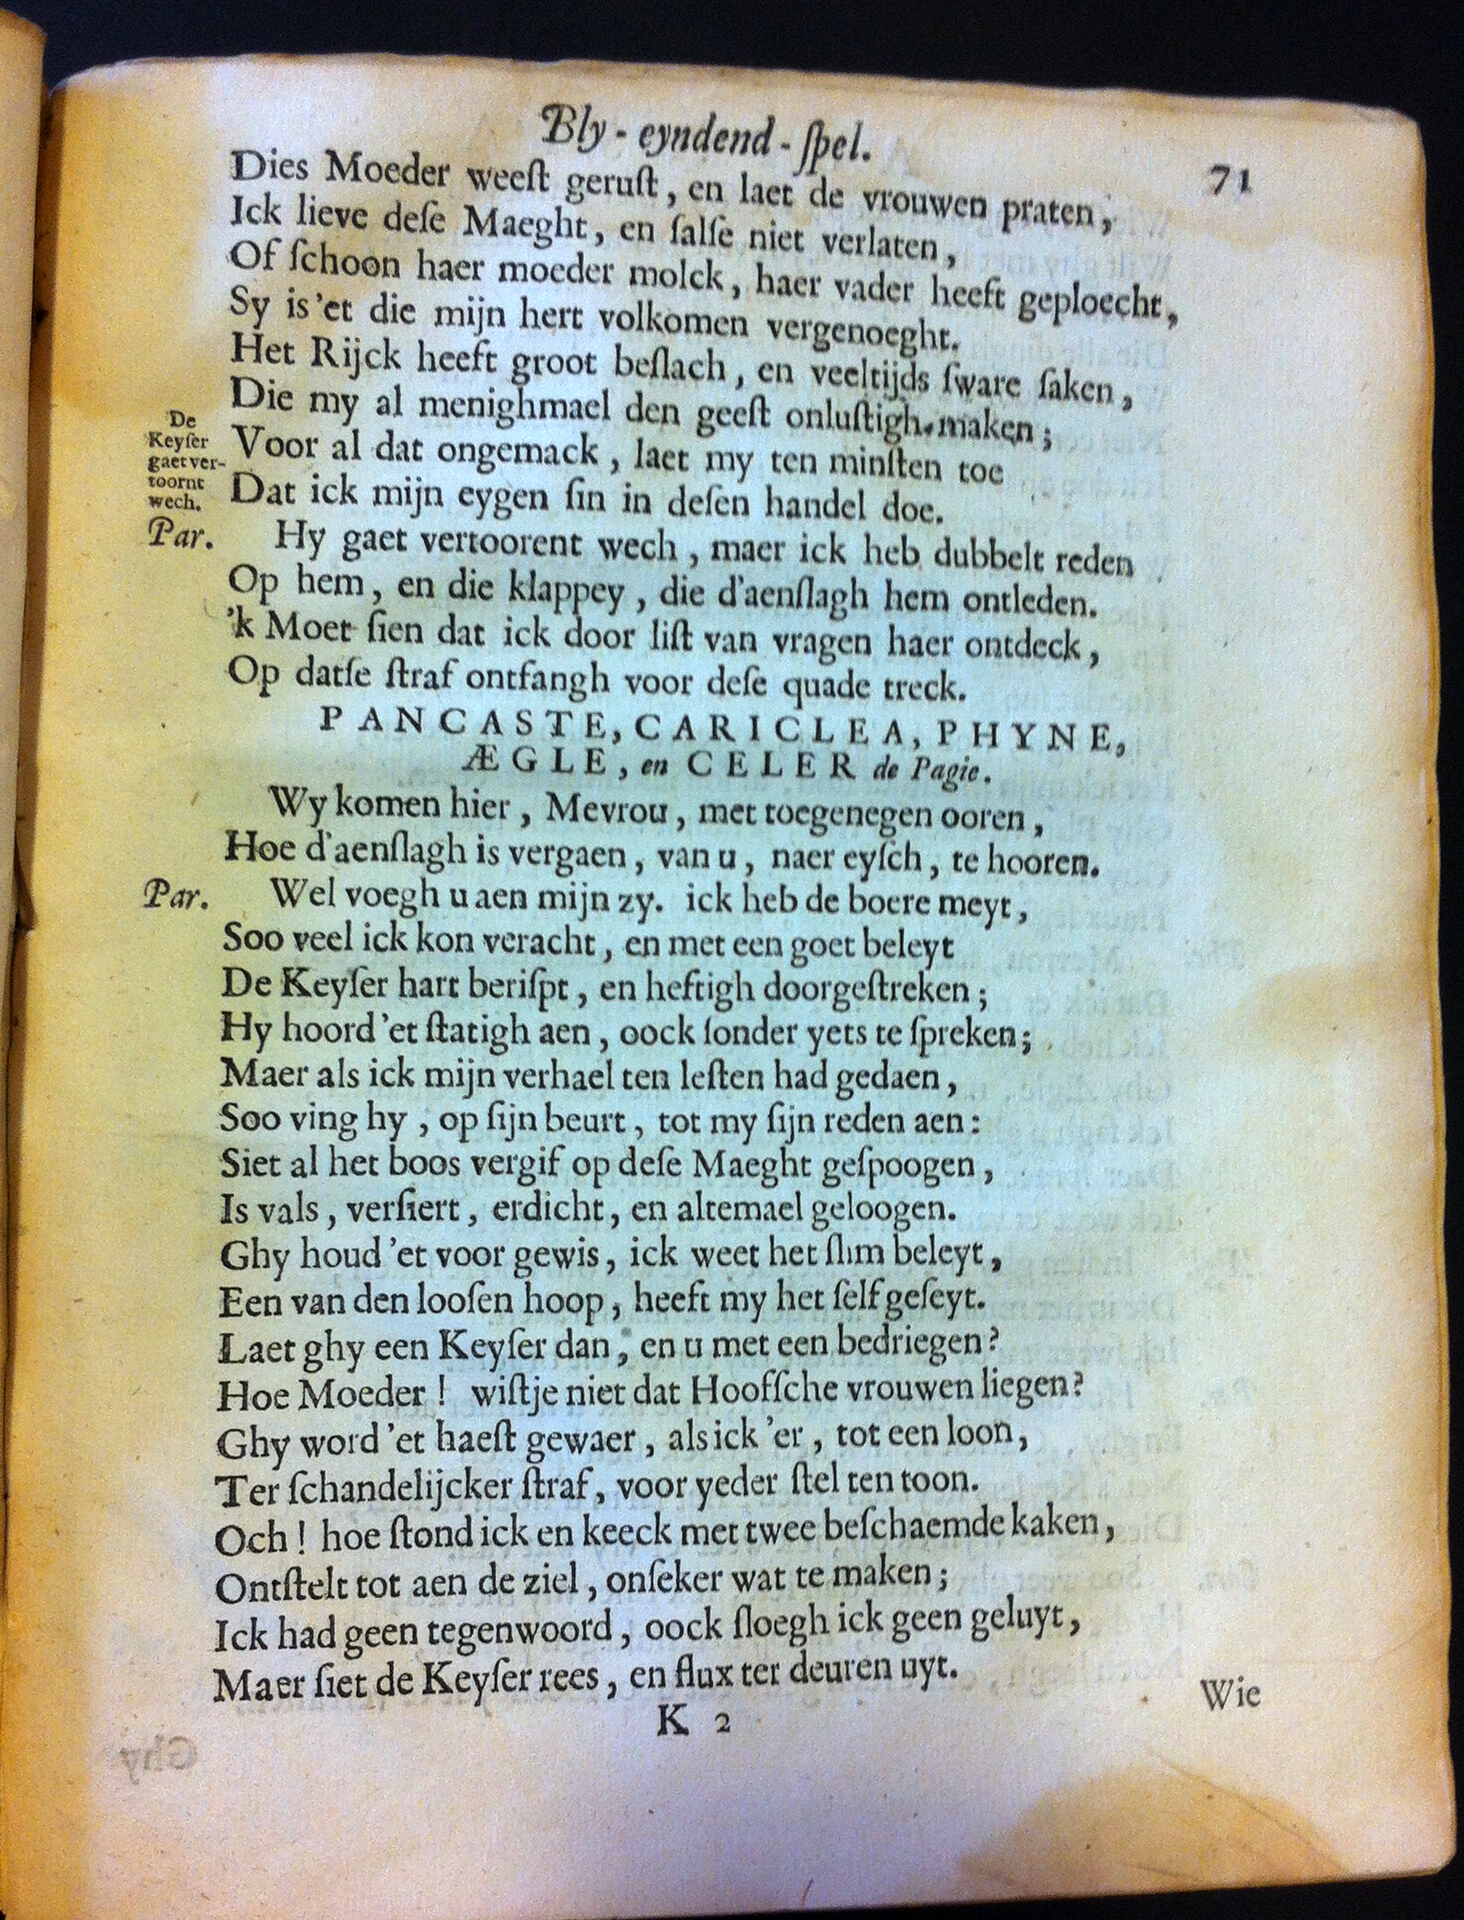 Bly-eyndend-ſpel.
71
Dies Moeder weeſt geruſt, en laet de vrouwen praten,
Ick lieve deſe Maeght, en ſalſe niet verlaten,
Of ſchoon haer moeder molck, haer vader heeft geploecht,
Sy is'et die mijn hert volkomen vergenoeght.
Het Rijck heeft groot beſlach, en veeltijds ſware ſaken,
Die my al menighmael den geeſt onluſtigh maken;
De
Keyſer
gaet ver-
toornt
wech.
Voor al dat ongemack, laet my ten minſten toe
Dat ick mijn eygen ſin in deſen handel doe.
Par. Hy gaet vertoorent wech, maer ick heb dubbelt reden
Op hem, en die klappey, die d'aenſlagh hem ontleden.
'k Moet ſien dat ick door liſt van vragen haer ontdeck,
Op datſe ſtraf ontfangh voor deſe quade treck.
PANCASTE, CARICLEA, PHYNE,
ÆGLE, en CELER de Pagie.
Wy komen hier, Mevrou, met toegenegen ooren,
Hoe d'aenſlagh is vergaen, van u, naer eyſch, te hooren.
Par. Wel voegh u aen mijn zy. ick heb de boere meyt,
Soo veel ick kon veracht, en met een goet beleyt
De Keyſer hart beriſpt, en heftigh doorgeſtreken;
Hy hoord'et ſtatigh aen, oock ſonder yets te ſpreken;
Maer als ick mijn verhael ten leſten had gedaen,
Soo ving hy, op ſijn beurt, tot my ſijn reden aen:
Siet al het boos vergif op deſe Maeght geſpoogen,
Is vals, verſiert, erdicht, en altemael geloogen.
Ghy houd'et voor gewis, ick weet het ſlim beleyt,
Een van den looſen hoop, heeft my het ſelf geſeyt.
Laet ghy een Keyſer dan, en u met een bedriegen?
Hoe Moeder! wiſtje niet dat Hoofſche vrouwen liegen?
Ghy word'et haeſt gewaer, als ick 'er, tot een loon,
Ter ſchandelijcker ſtraf, voor yeder ſtel ten toon.
Och! hoe ſtond ick en keeck met twee beſchaemde kaken,
Ontſtelt tot aen de ziel, onſeker wat te maken;
Ick had geen tegenwoord, oock ſloegh ick geen geluyt,
Maer ſiet de Keyſer rees, en flux ter deuren uyt.
K 2
Wie